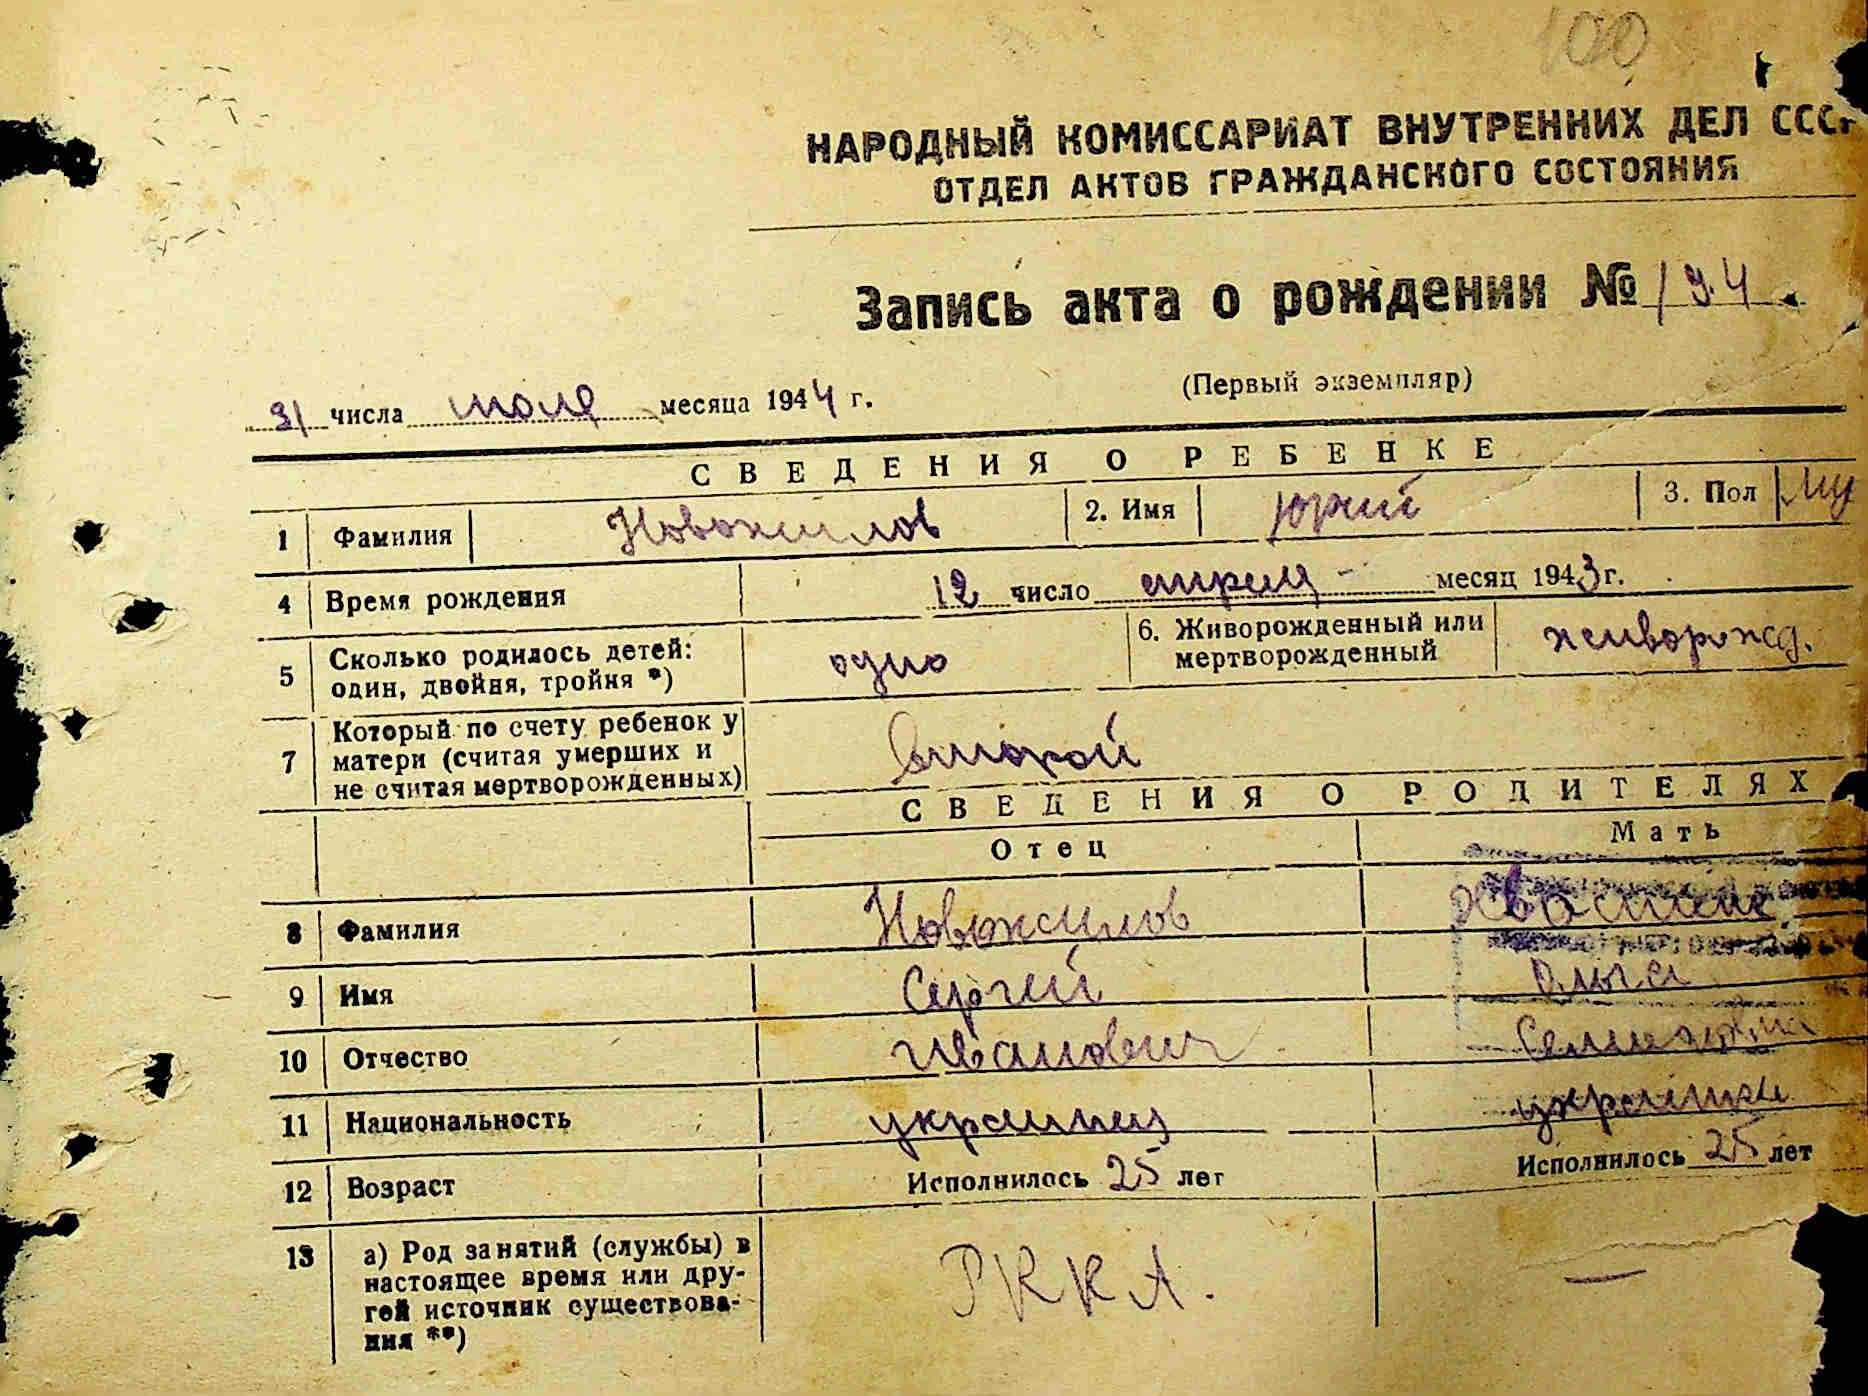 100
НАРОДНЫЙ КОМИССАРИАТ ВНУТРЕННИХ ДЕЛ СССР
ОТДЕЛ АКТОВ ГРАЖДАНСКОГО СОСТОЯНИЯ
Запись акта о рождении № 194
(Первый экземпляр)
31 числа июля месяца 1944 г.
СВЕДЕНИЯ О РЕБЕНКЕ
1 Фамилия Новожилов 2. Имя Юрий 3. Пол Му
4 Время рождения 12 число апреля месяц 1943 г.
5 Сколько родилось детей: один, двойня, тройня *) одно 6. Живорожденный или мертворожденный живорожд.
7 Который по счету ребенок у матери (считая умерших и не считая мертворожденных) второй
СВЕДЕНИЯ О РОДИТЕЛЯХ
Отец Мать
8 Фамилия Новожилов
9 Имя Сергей
10 Отчество Иванович Семеновна
11 Национальность украинец украинка
12 Возраст Исполнилось 25 лет Исполнилось 25 лет
13 а) Род занятий (службы) в настоящее время или другой источник существования **) РККА. —